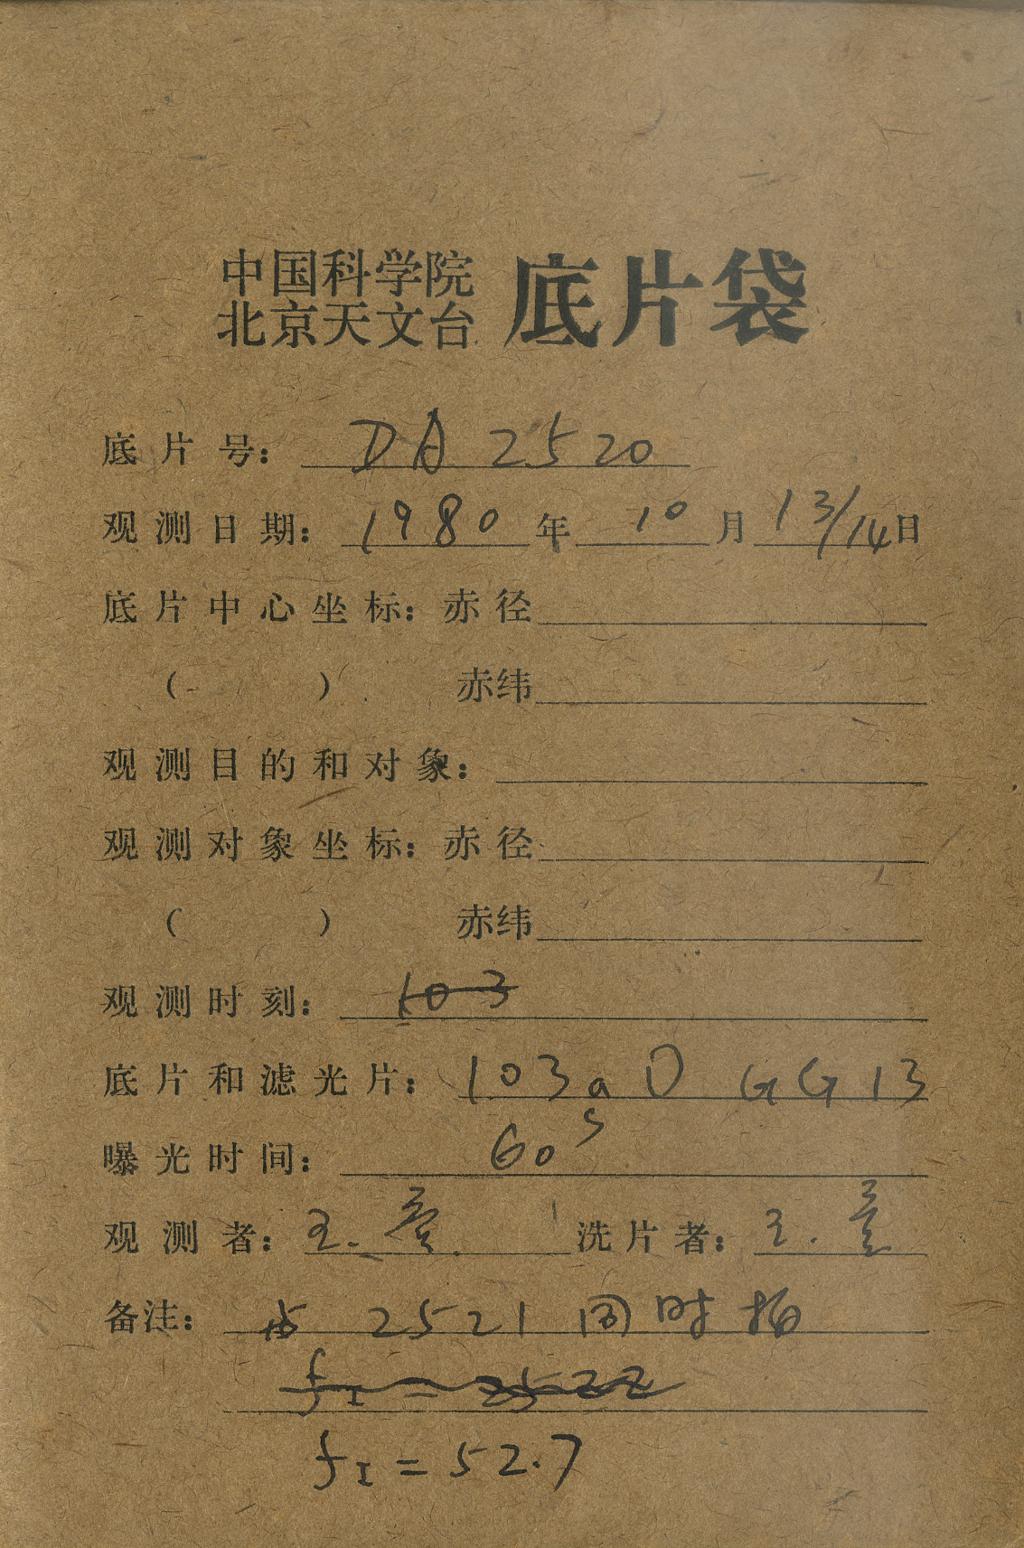 中国科学院
北京天文台 底片袋
底片号: DA 2520
观测日期: 1980 年 10 月 13/14 日
底片中心坐标: 赤径
( ) 赤纬
观测目的和对象:
观测对象坐标: 赤径
( ) 赤纬
观测时刻: 103
底片和滤光片: 103aD GG13
曝光时间: 60s
观测者: 王. 洗片者: 王.
备注: 与 2521 同时拍
fI = 2522
fI = 52.7